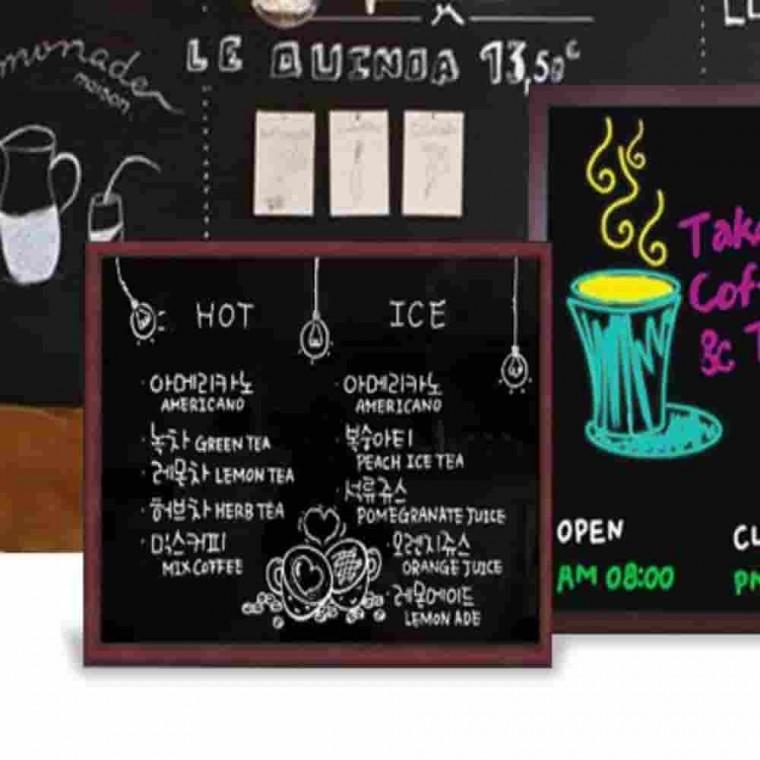 Lemonade
maison
LE QUINOA 13,50€
HOT
아메리카노
AMERICANO
녹차 GREEN TEA
레몬차 LEMON TEA
허브차 HERB TEA
믹스커피
MIX COFFEE
ICE
아메리카노
AMERICANO
복숭아티
PEACH ICE TEA
석류쥬스
POMEGRANATE JUICE
오렌지쥬스
ORANGE JUICE
레몬에이드
LEMON ADE
Take
Cof
& T
OPEN
AM 08:00
CL
PM